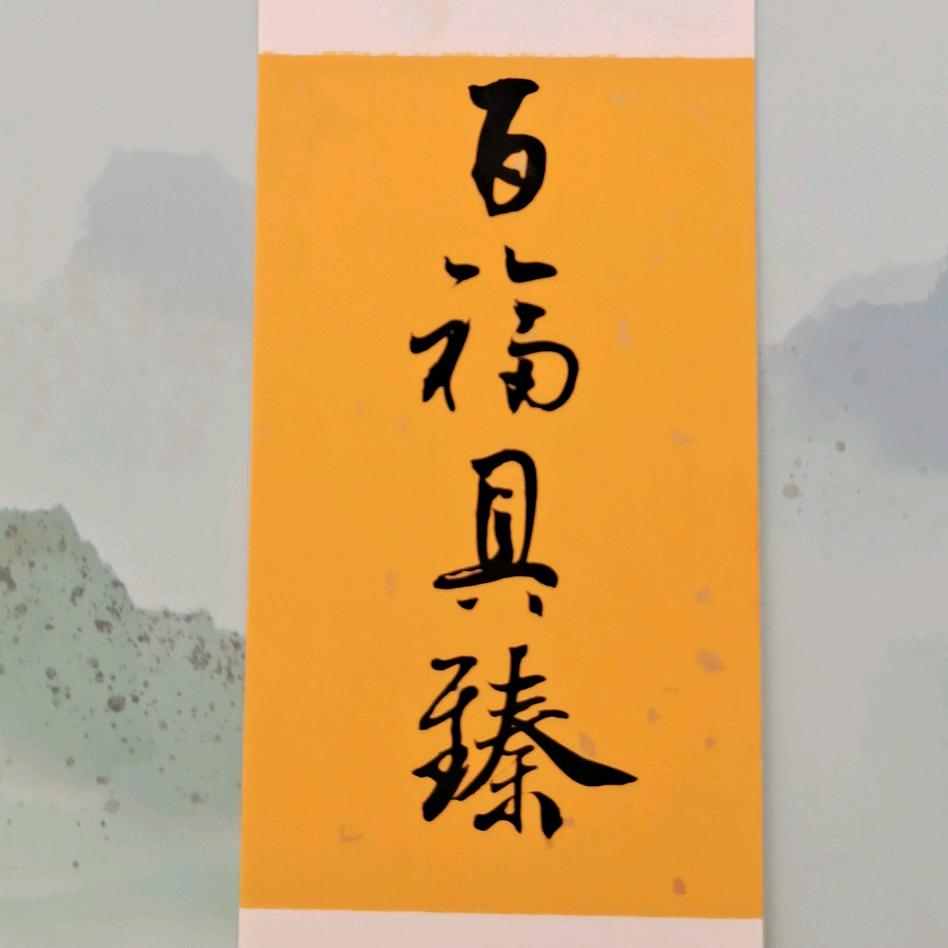 百福具臻